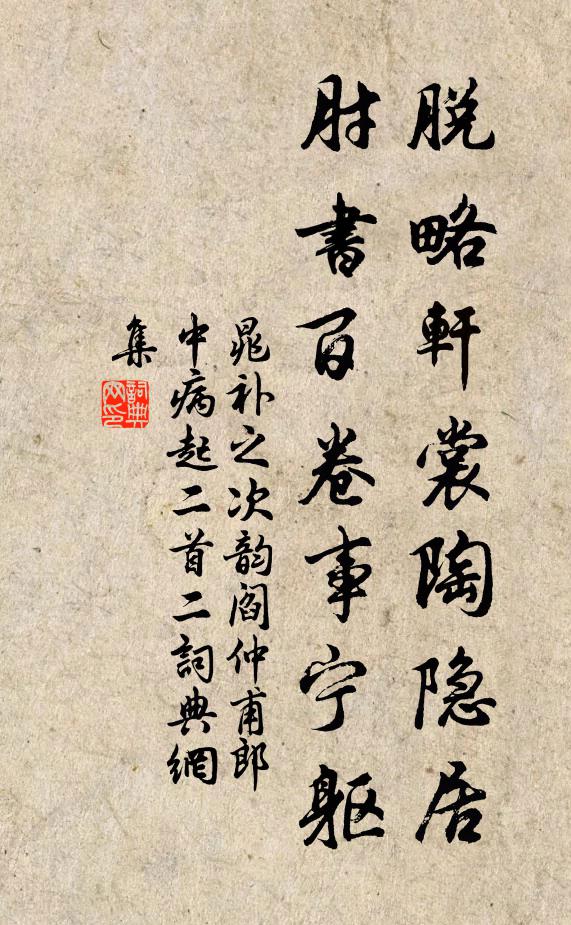 脱略軒裳陶隐居
肘書百卷事宁躯
晁补之次韵阎仲甫郎
中病起二首二詞典網
集
詞典網印